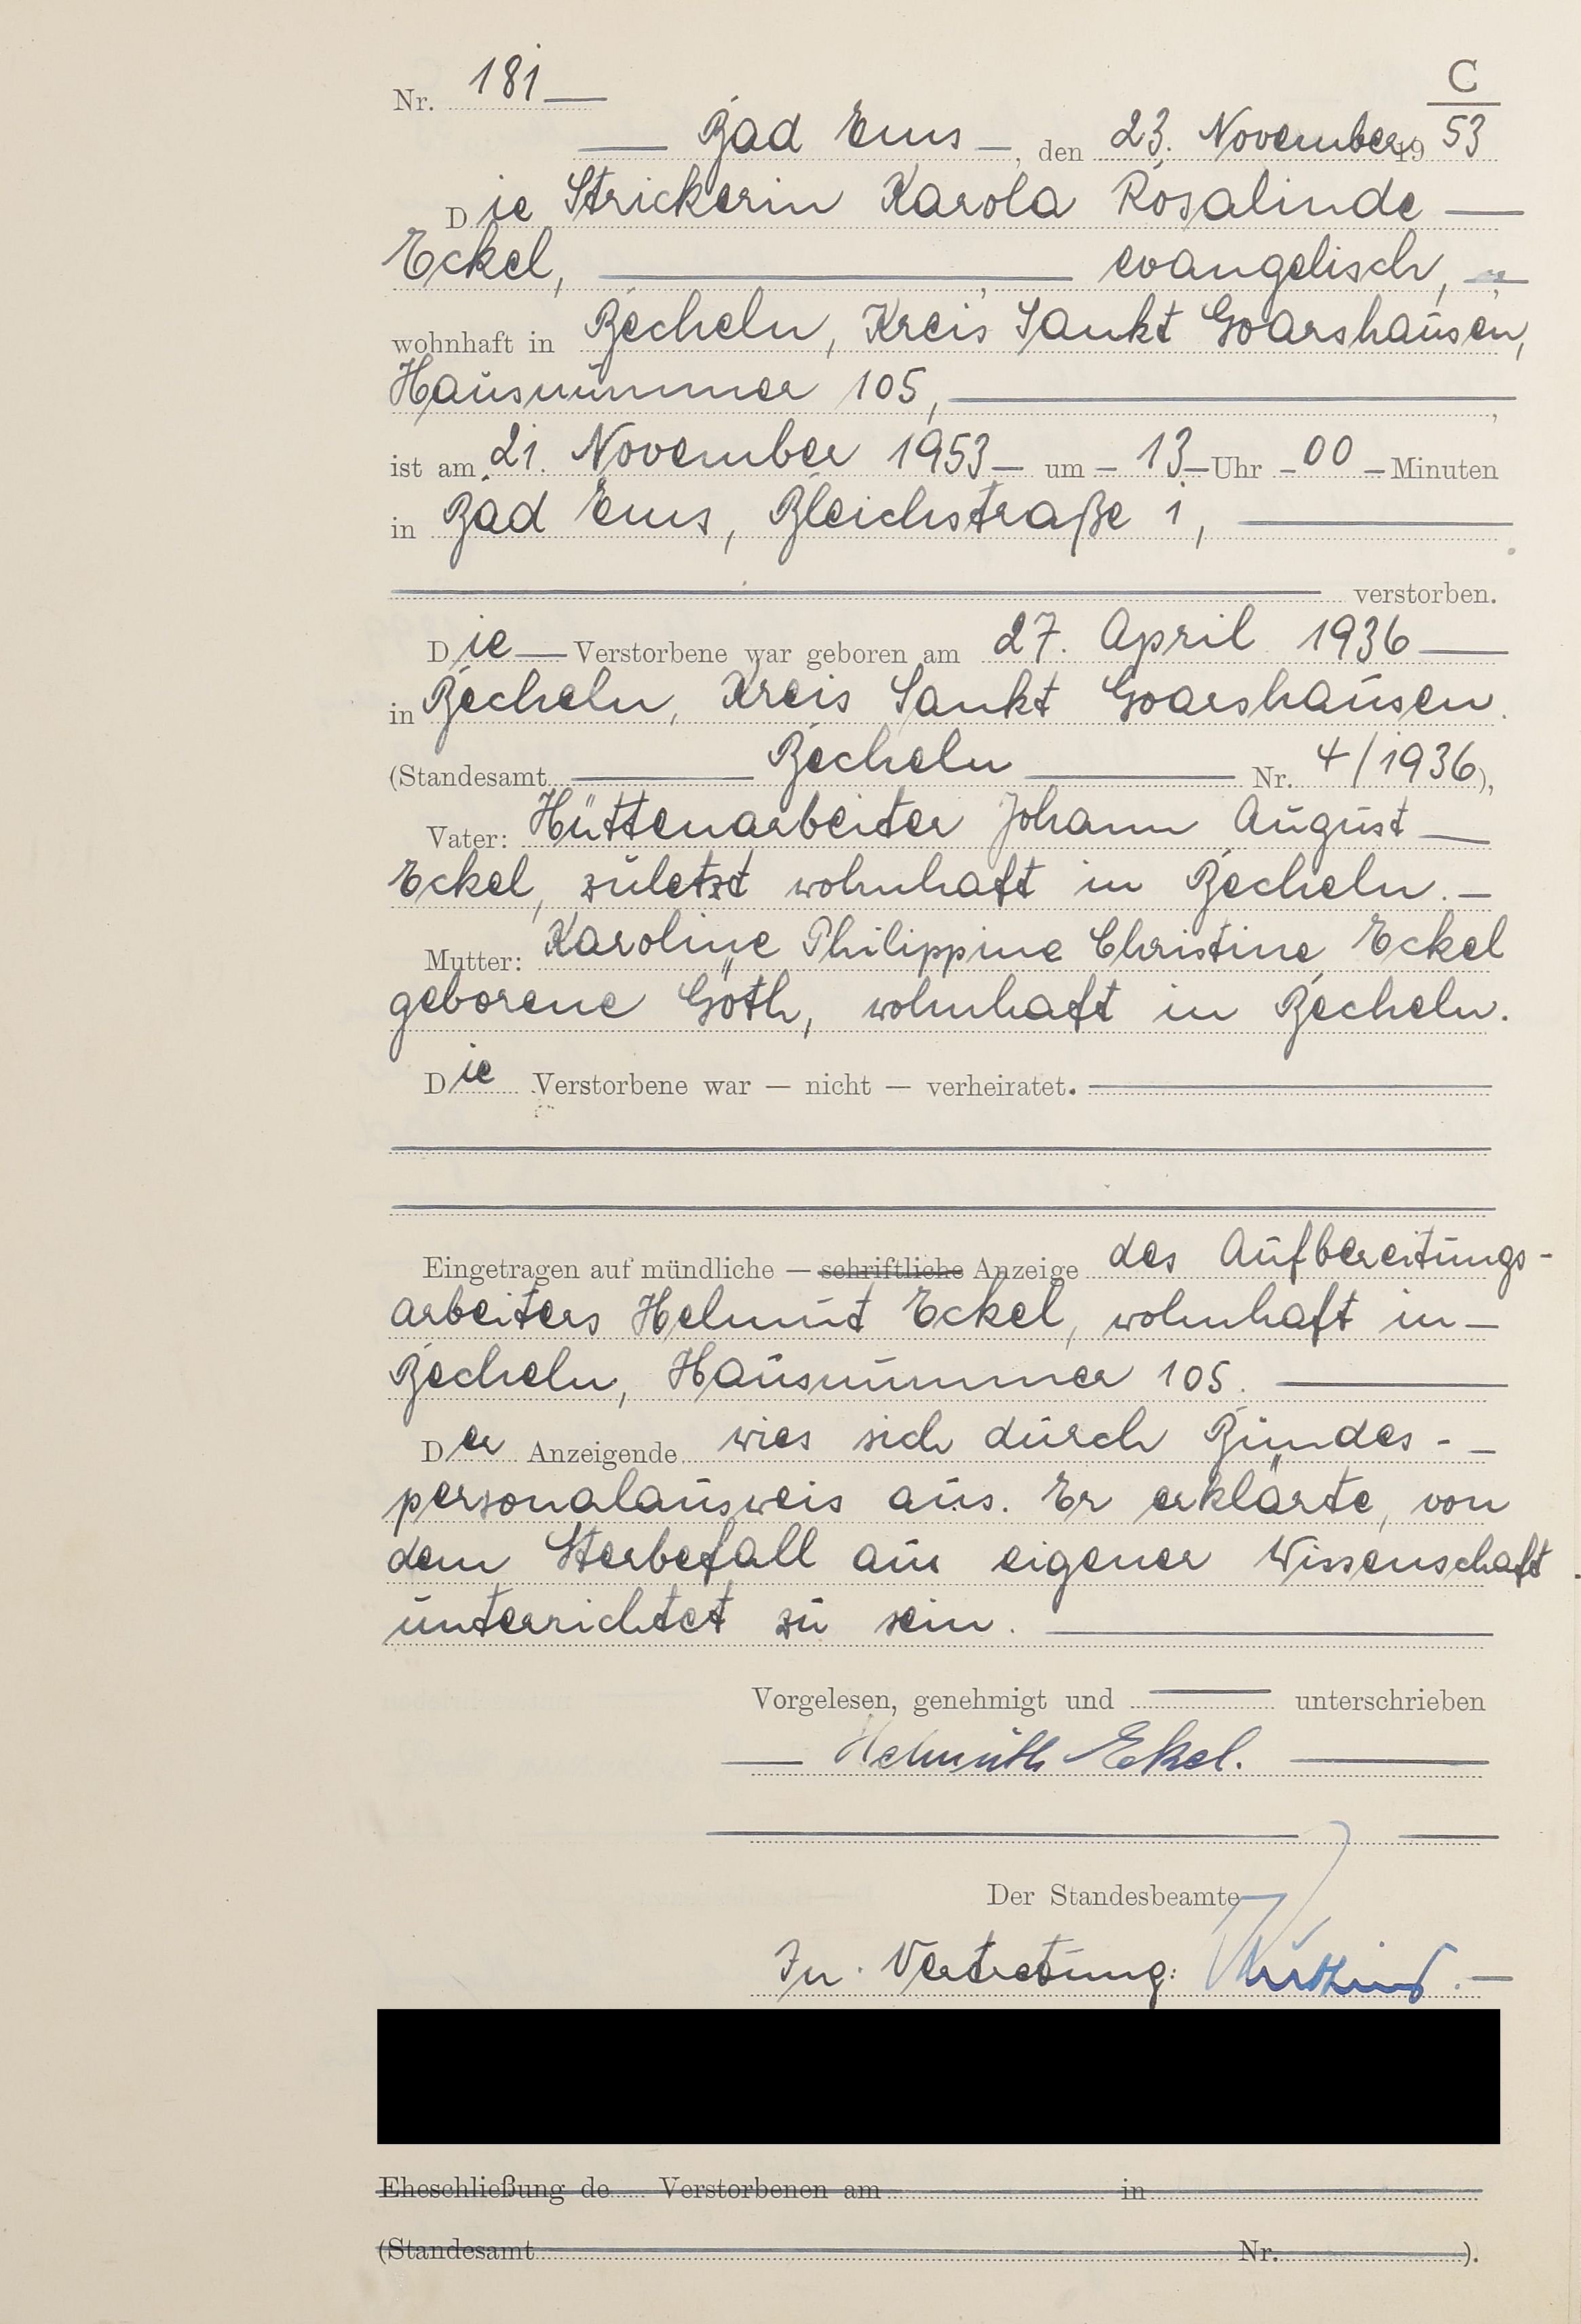 C
Nr. 181
Bad Ems, den 23. November 1953
Die Strickerin Karola Rosalinde
Eckel, evangelisch,
wohnhaft in Becheln, Kreis Sankt Goarshausen,
Hausnummer 105,
ist am 21. November 1953 um 13 Uhr 00 Minuten
in Bad Ems, Bleichstraße 1,
verstorben.
Die Verstorbene war geboren am 27. April 1936
in Becheln, Kreis Sankt Goarshausen.
(Standesamt Becheln Nr. 4/1936),
Vater: Hüttenarbeiter Johann August
Eckel, zuletzt wohnhaft in Becheln.
Mutter: Karoline Philippine Christine Eckel
geborene Göth, wohnhaft in Becheln.
Die Verstorbene war — nicht — verheiratet.
Eingetragen auf mündliche — schriftliche Anzeige des Aufbereitungs-
arbeiters Helmut Eckel, wohnhaft in
Becheln, Hausnummer 105.
Der Anzeigende wies sich durch Bundes-
personalausweis aus. Er erklärte, von
dem Sterbefall aus eigener Wissenschaft
unterrichtet zu sein.
Vorgelesen, genehmigt und unterschrieben
Helmuth Ekel.
Der Standesbeamte
In Vertretung:
Eheschließung de Verstorbenen am in
(Standesamt Nr. ).